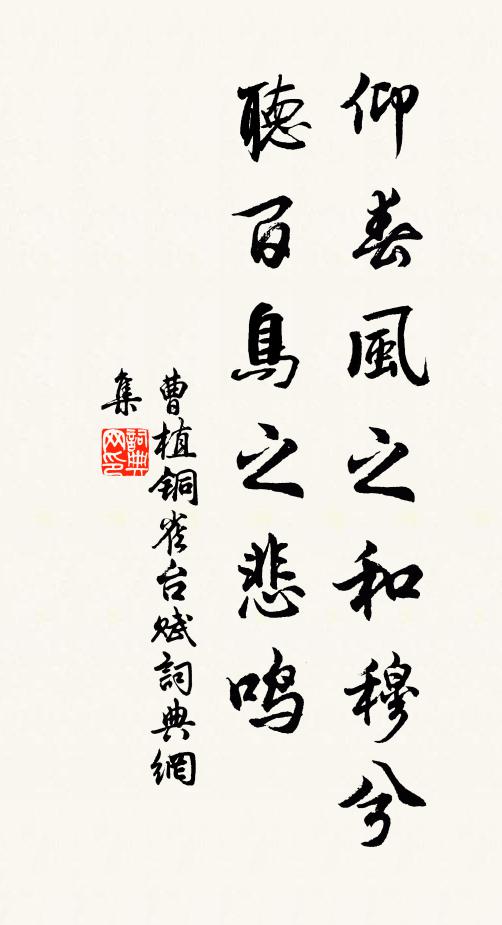 仰春風之和穆兮
聽百鳥之悲鳴
曹植銅雀台賦詞典網
集
詞典网印